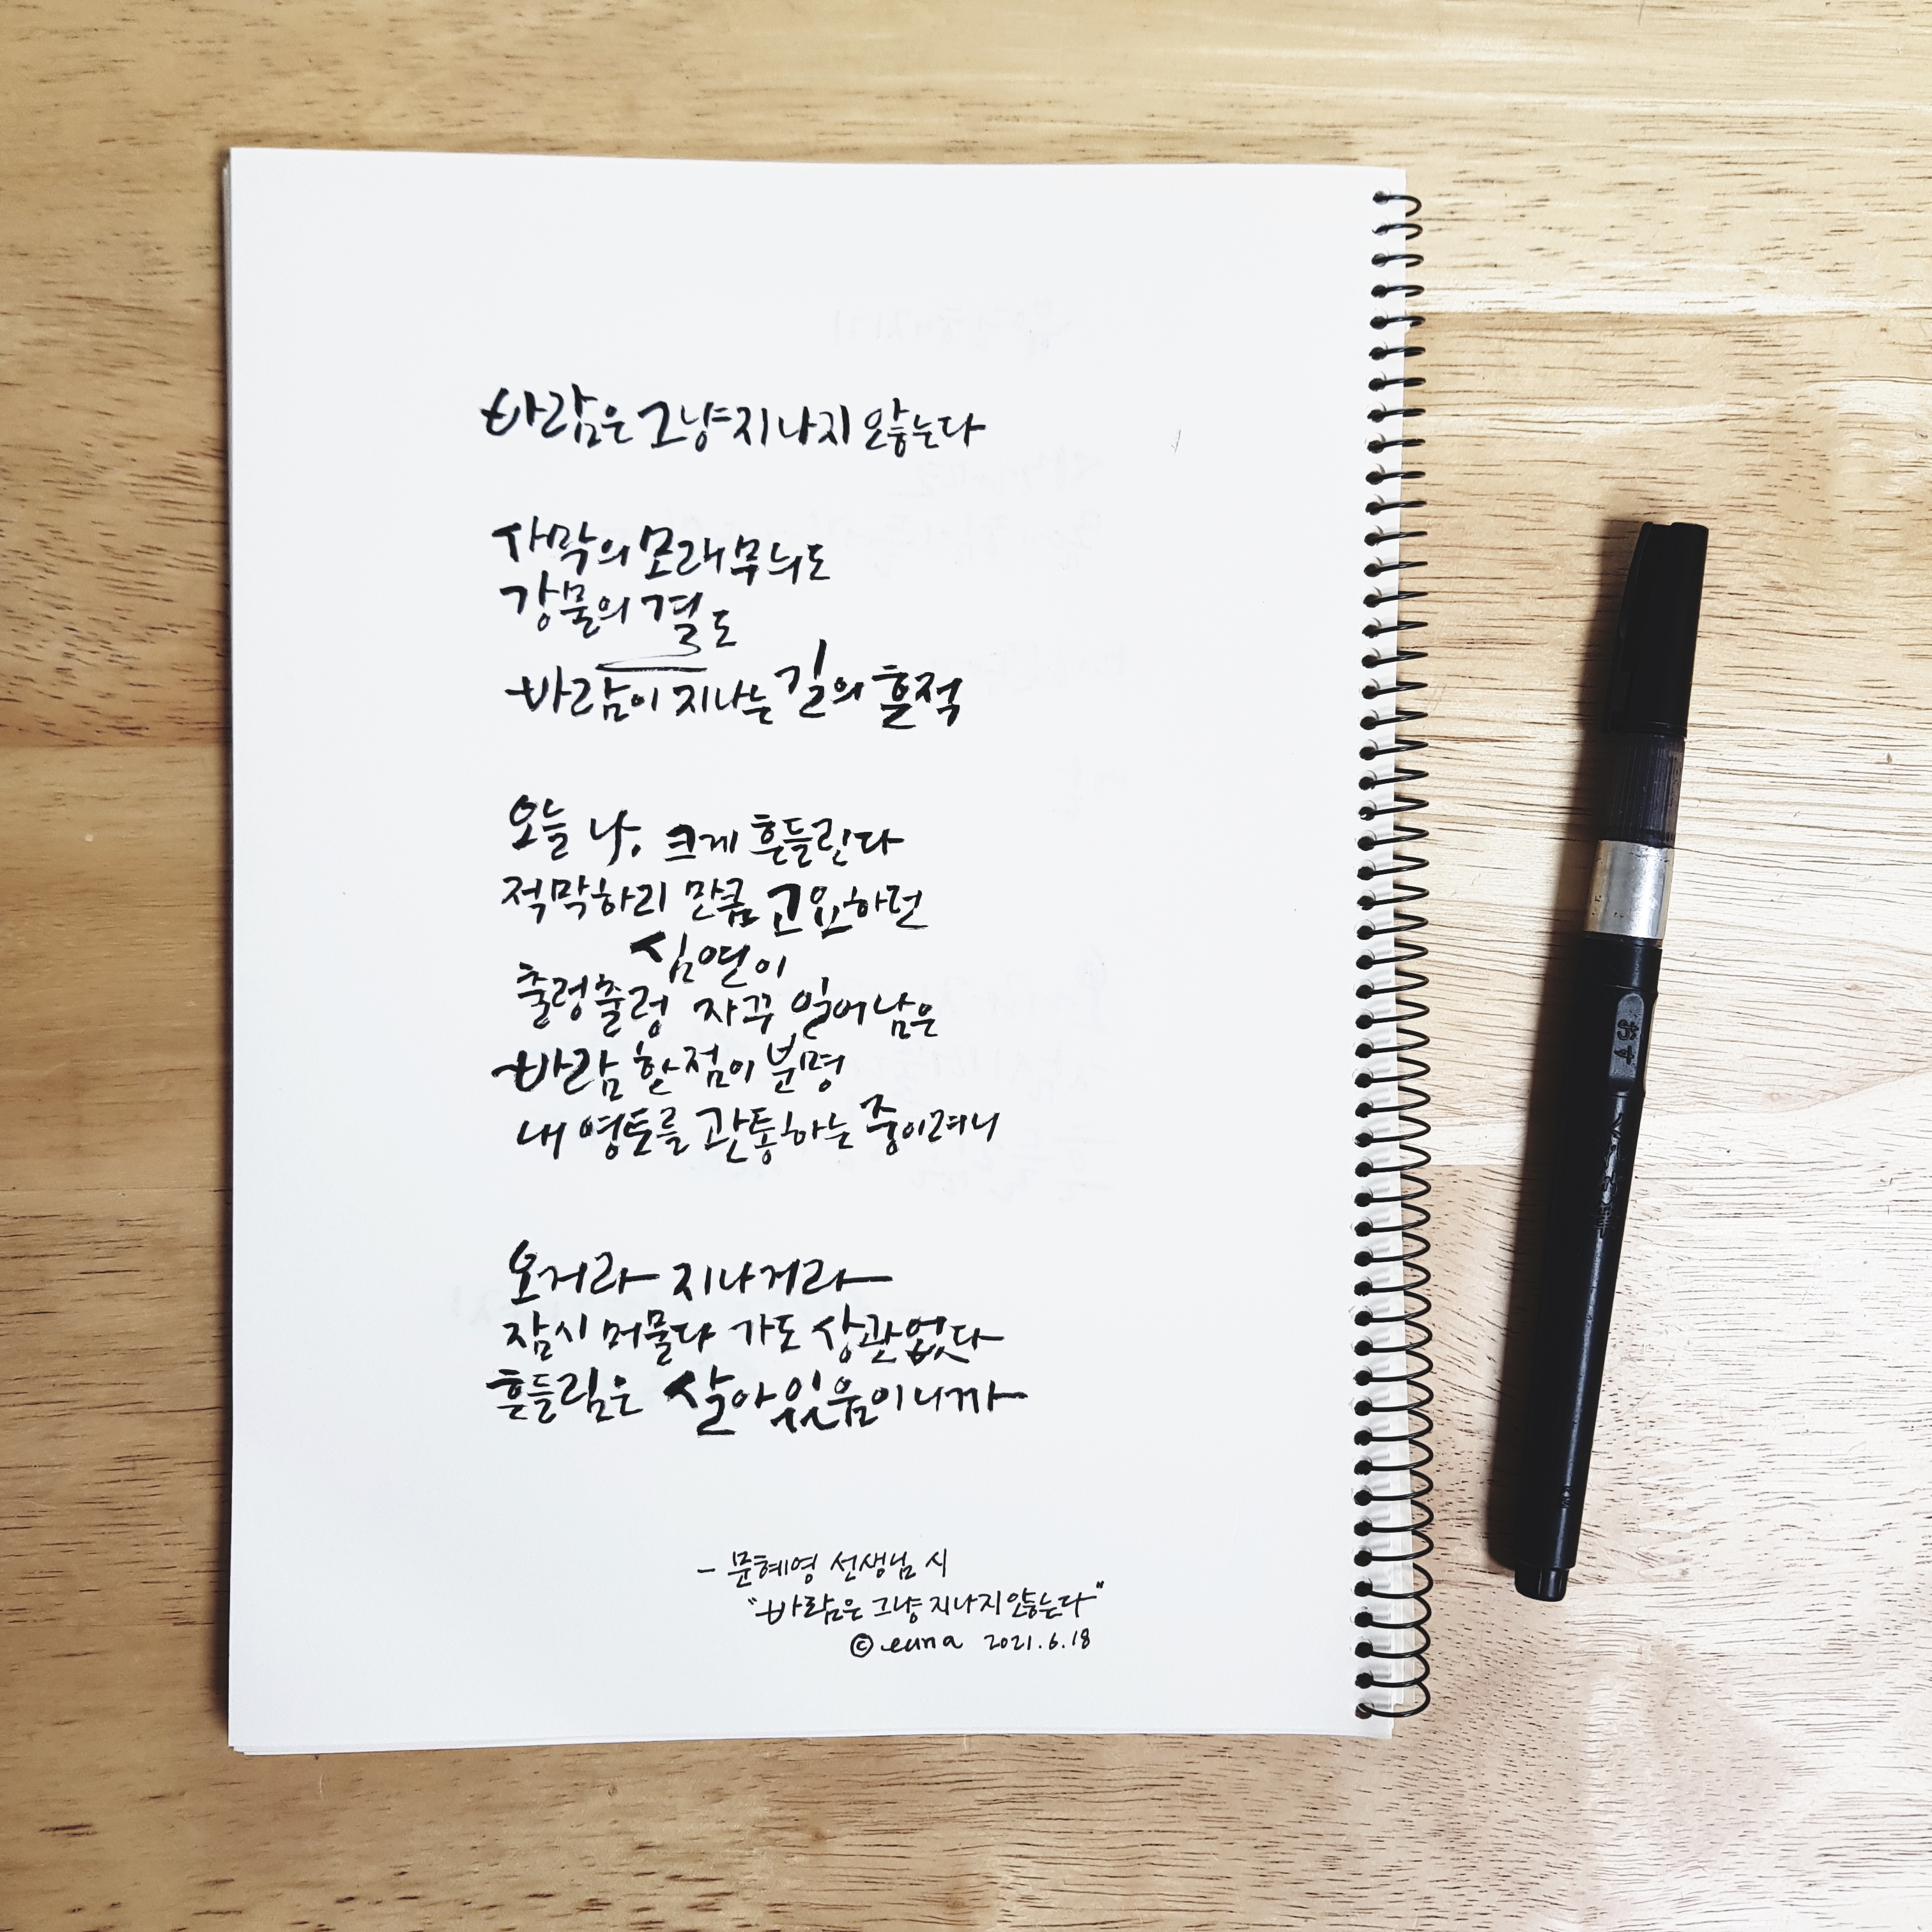 바람은 그냥 지나지 않는다
사막의 모래무늬도
강물의 결도
바람이 지나는 길의 흔적
오늘 나, 크게 흔들린다
적막하리 만큼 고요하던
심연이
출렁출렁 자꾸 일어남은
바람 한 점이 분명
내 영토를 관통하는 중이려니
오거라 지나거라
잠시 머물다 가도 상관없다
흔들림은 살아있음이니까
- 문혜영 선생님 시
"바람은 그냥 지나지 않는다"
© euna 2021.6.18